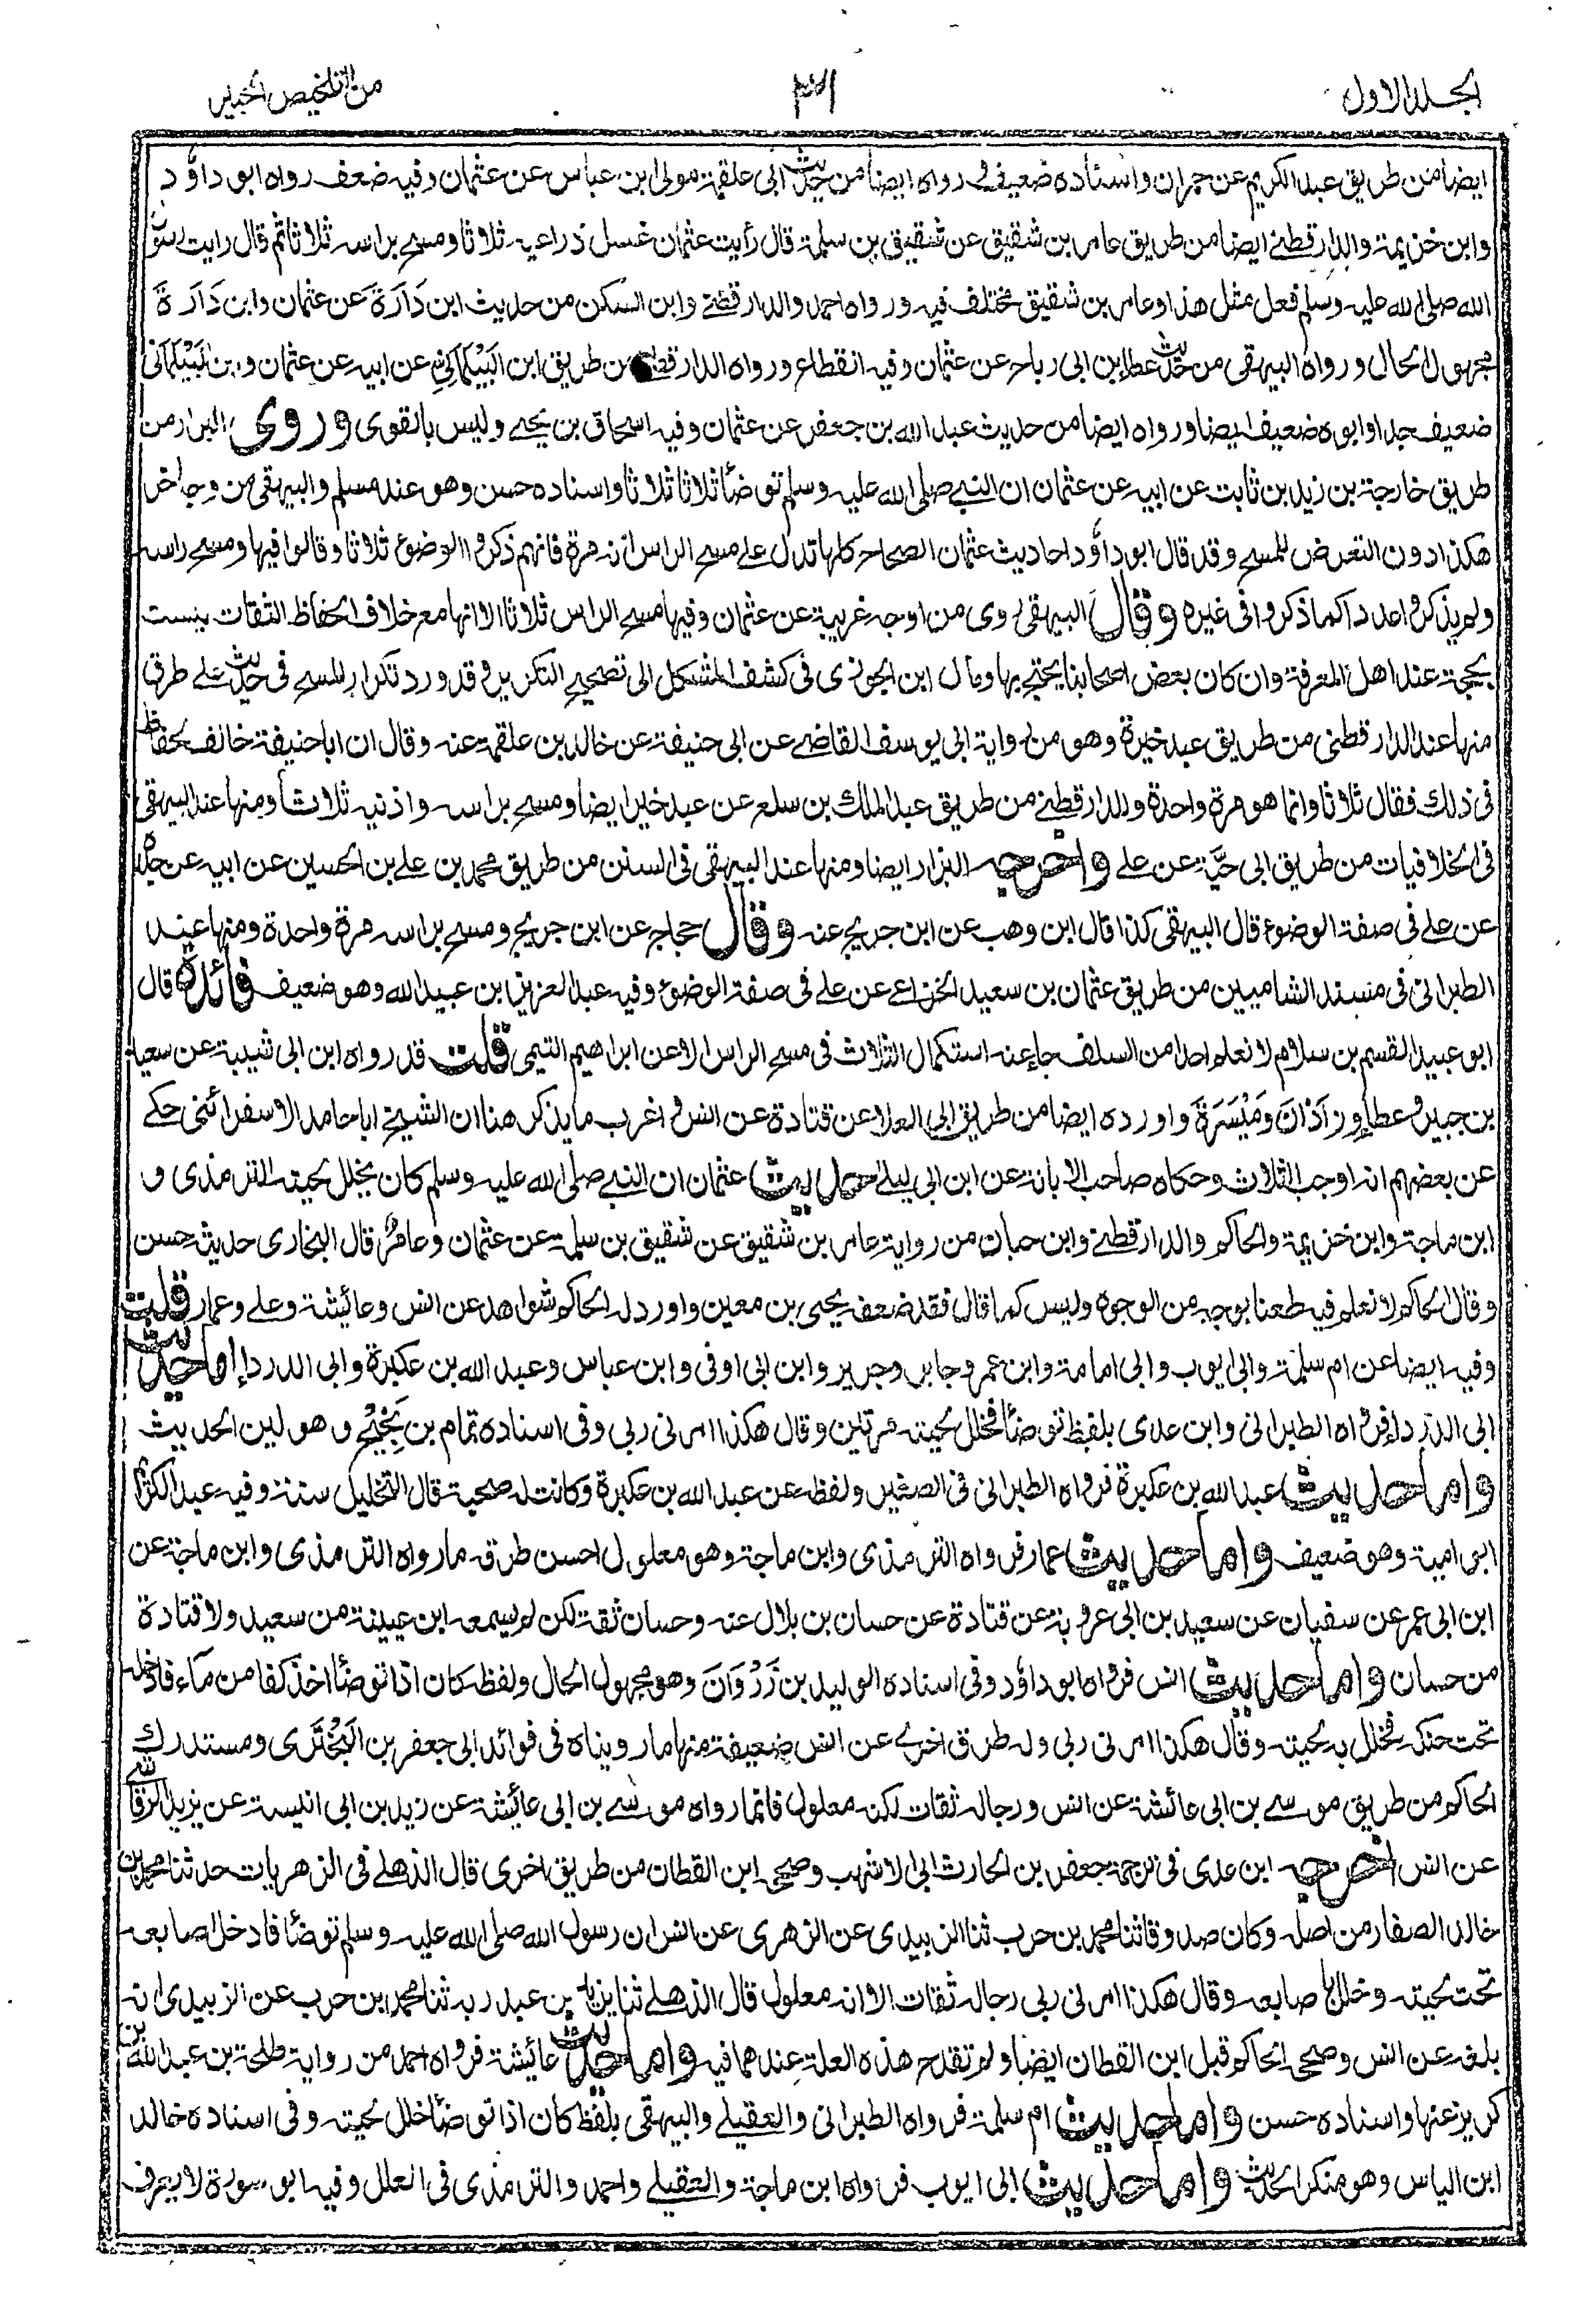 الجلد الاول
٣١
من التلخيص الحبير
ايضا من طريق عبد الكريم عن حمران واسناده ضعيف ورواه ايضا من حديث ابى علقمة مولى ابن عباس عن عثمان وفيه ضعف رواه ابو داؤد
وابن خزيمة والدارقطنے ايضا من طريق عامر بن شقيق عن شقيق بن سلمة قال رأيت عثمان غسل ذراعيه ثلاثا ومسح براسه ثلاثا ثم قال رايت رسول
الله صلى الله عليه وسلم فعل مثل هذا وعامر بن شقيق مختلف فيه ورواه احمد والدارقطنے وابن السكن من حديث ابن دَارَةَ عن عثمان وابن دَارَةَ
مجهول الحال ورواه البيهقى من حديث عطاء بن ابى رباح عن عثمان وفيه انقطاع ورواه الدارقطنے من طريق ابن البَيْلَمَانِي عن ابيه عن عثمان وابن البَيْلَمَانى
ضعيف جدا وابوه ضعيف ايضا ورواه ايضا من حديث عبد الله بن جعفر عن عثمان وفيه اسحاق بن يحيے وليس بالقوى وروى البزار من
طريق خارجة بن زيد بن ثابت عن ابيه عن عثمان ان النبے صلى الله عليه وسلم توضأ ثلاثا ثلاثا واسناده حسن وهو عند مسلم والبيهقى من وجه اخر
هكذا دون التعرض للمسح وقد قال ابو داؤد احاديث عثمان الصحاح كلها تدل علے مسح الراس انه مرة فانهم ذكروا الوضوء ثلاثا وقالوا فيها ومسح راسه
ولم يذكروا عددا كما ذكروا فى غيره وقال البيهقى روى من اوجه غريبة عن عثمان وفيها مسح الراس ثلاثا الا انها مع خلاف الحفاظ الثقات ليست
بحجة عند اهل المعرفة وان كان بعض اصحابنا يحتج بها ومال ابن الجوزى فى كشف المشكل الى تصحيح التكرير وقد ورد تكرار للمسح فى حديث علے طرق
منها عند الدارقطنى من طريق عبد خيرة وهو من رواية ابى يوسف القاضے عن ابى حنيفة عن خالد بن علقمة عنه وقال ان ابا حنيفة خالف الحفاظ
فى ذلك فقال ثلاثا وانما هو مرة واحدة وللدارقطنے من طريق عبد الملك بن سلع عن عبد خير ايضا ومسح براسه واذنيه ثلاثا ومنها عند البيهقى
فى الخلافيات من طريق ابى حيَّة عن علے واخرجه البزار ايضا ومنها عند البيهقى فى السنن من طريق محمد بن علے بن الحسين عن ابيه عن جده
عن علے فى صفة الوضوء قال البيهقى كذا قال ابن وهب عن ابن جريج عنه وقال حجاج عن ابن جريج ومسح براسه مرة واحدة ومنها عند
الطبرانى فى مسند الشاميين من طريق عثمان بن سعيد الخزاعے عن علے فى صفة الوضوء وفيه عبد العزيز ابن عبيد الله وهو ضعيف فائدة قال
ابو عبيد القسم بن سلام لا نعلم احدا من السلف جاء عنه استكمال الثلاث فى مسح الراس الا عن ابراهيم التيمى قلت قد رواه ابن ابى شيبة عن سعيد
بن جبير وعطاء وزَاذَانَ ومَيْسَرَةَ واورده ايضا من طريق ابى العلا عن قتادة عن انس واغرب ما يذكر هنا ان الشيخ ابا حامد الاسفرائنى حكے
عن بعضهم انه اوجب الثلاث وحكاه صاحب الابانة عن ابن ابى ليلے حديث عثمان ان النبے صلى الله عليه وسلم كان يخلل لحيته الترمذى و
ابن ماجة وابن خزيمة والحاكم والدارقطنے وابن حبان من رواية عامر بن شقيق عن شقيق بن سلمة عن عثمان وعامرٌ قال البخارى حديثه حسن
وقال الحاكم لا نعلم فيه طعنا بوجه من الوجوه وليس كما قال فقد ضعفه يحيى بن معين واورد له الحاكم شواهد عن انس وعائيشة وعلے وعمار قلت
وفيه ايضا عن ام سلمة وابى ايوب وابى امامة وابن عمر وجابر وجرير وابن ابى اوفى وابن عباس وعبد الله بن عكبرة وابى الدرداء اما حديث
ابى الدرداء فرواه الطبرانى وابن عدى بلفظ توضأ فخلل لحيته مرتين وقال هكذا امرنى ربى وفى اسناده تمام بن نَجِيْح وهو لين الحديث
واما حديث عبد الله بن عكبرة فرواه الطبرانى فى الصغير ولفظه عن عبد الله بن عكبرة وكانت له صحبة قال التخليل سنة وفيه عبد الكريم
ابى امية وهو ضعيف واما حديث عمار فرواه الترمذى وابن ماجة وهو معلول احسن طرقه ما رواه الترمذى وابن ماجة عن
ابن ابى عمر عن سفيان عن سعيد بن ابى عروبة عن قتادة عن حسان بن بلال عنه وحسان ثقة لكن لم يسمعه ابن عيينة من سعيد ولا قتادة
من حسان واما حديث انس فرواه ابو داؤد وفى اسناده الوليد بن زَرْوَانَ وهو مجهول الحال ولفظه كان اذا توضأ اخذ كفا من مآء فادخله
تحت حنكه فخلل به لحيته وقال هكذا امرنى ربى وله طرق اخرے عن انس ضعيفة منها ما رويناه فى فوائد ابى جعفر بن البَخْتَرى ومستدرك
الحاكم من طريق موسے بن ابى عائيشة عن انس ورجاله ثقات لكنه معلول فانما رواه موسے بن ابى عائيشة عن زيد بن ابى انيسة عن يزيد الرقاشے
عن انس اخرجه ابن عدى فى ترجمة جعفر بن الحارث ابى الاشهب وصححه ابن القطان من طريق اخرى قال الذهلے فى الزهريات حدثنا محمد بن
خالد الصفار من اصله وكان صدوقا ثنا محمد بن حرب ثنا الزبيدى عن الزهرى عن انس ان رسول الله صلى الله عليه وسلم توضأ فادخل اصابعه
تحت لحيته وخلل باصابعه وقال هكذا امرنى ربى رجاله ثقات الا انه معلول قال الذهلے ثنا يزيد بن عبد ربه ثنا محمد بن حرب عن الزبيدى انه
بلغه عن انس وصححه الحاكم قبل ابن القطان ايضا ولم تقدح هذه العلة عندهما فيه واما حديث عائيشة فرواه احمد من رواية طلحة بن عبد الله بن
كريز عنها واسناده حسن واما حديث ام سلمة فرواه الطبرانى والعقيلے والبيهقى بلفظ كان اذا توضأ خلل لحيته وفى اسناده خالد
ابن الياس وهو منكر الحديث واما حديث ابى ايوب فرواه ابن ماجة والعقيلے واحمد والترمذى فى العلل وفيه ابو سورة لا يعرف